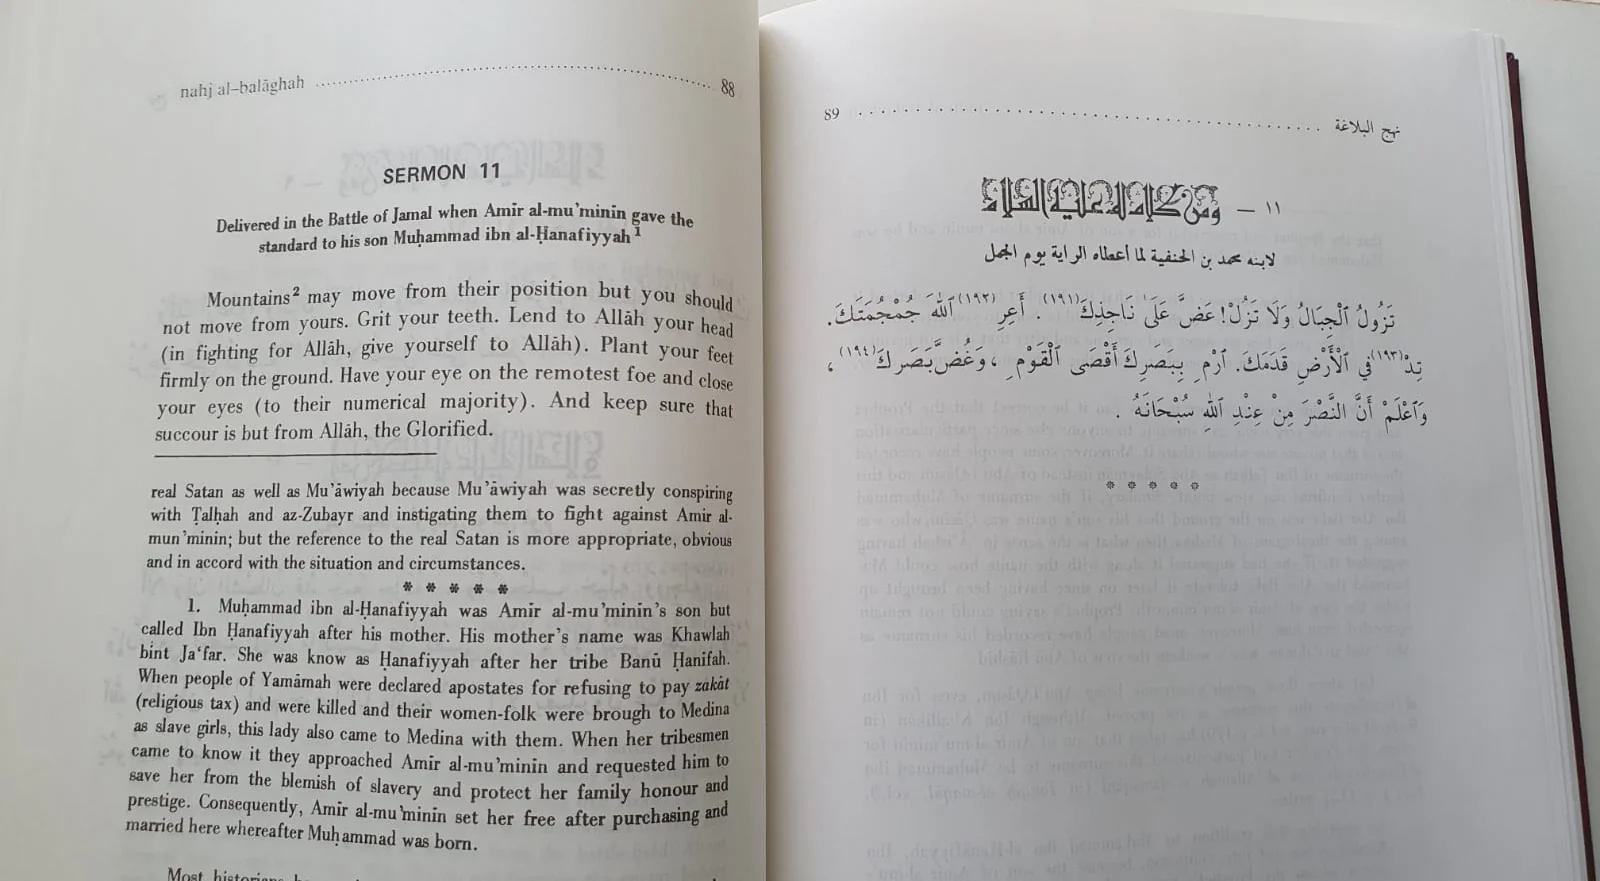 nahj al-balāghah ........................ 88
SERMON 11
Delivered in the Battle of Jamal when Amīr al-mu'minīn gave the
standard to his son Muḥammad ibn al-Ḥanafiyyah¹
Mountains² may move from their position but you should
not move from yours. Grit your teeth. Lend to Allāh your head
(in fighting for Allāh, give yourself to Allāh). Plant your feet
firmly on the ground. Have your eye on the remotest foe and close
your eyes (to their numerical majority). And keep sure that
succour is but from Allāh, the Glorified.
real Satan as well as Mu'āwiyah because Mu'āwiyah was secretly conspiring
with Ṭalḥah and az-Zubayr and instigating them to fight against Amīr al-
mun'minīn; but the reference to the real Satan is more appropriate, obvious
and in accord with the situation and circumstances.
* * * * *
1. Muḥammad ibn al-Ḥanafiyyah was Amīr al-mu'minīn's son but
called Ibn Ḥanafiyyah after his mother. His mother's name was Khawlah
bint Ja'far. She was know as Ḥanafiyyah after her tribe Banū Ḥanīfah.
When people of Yamāmah were declared apostates for refusing to pay zakāt
(religious tax) and were killed and their women-folk were brough to Medina
as slave girls, this lady also came to Medina with them. When her tribesmen
came to know it they approached Amīr al-mu'minīn and requested him to
save her from the blemish of slavery and protect her family honour and
prestige. Consequently, Amīr al-mu'minīn set her free after purchasing and
married here whereafter Muḥammad was born.
Most historians
نهج البلاغة ........................ 89
١١ – ومن كلام له عليه السلام
لابنه محمد بن الحنفية لما أعطاه الراية يوم الجمل
تَزُولُ ٱلْجِبَالُ وَلَا تَزُلْ! عَضَّ عَلَىٰ نَاجِذِكَ(١٩١). أَعِرِ(١٩٢) ٱللهَ جُمْجُمَتَكَ.
تِدْ(١٩٣) فِي ٱلْأَرْضِ قَدَمَكَ. ٱرْمِ بِبَصَرِكَ أَقْصَى ٱلْقَوْمِ ، وَغُضَّ بَصَرَكَ(١٩٤) ،
وَٱعْلَمْ أَنَّ النَّصْرَ مِنْ عِنْدِ ٱللهِ سُبْحَانَهُ .
* * * * *